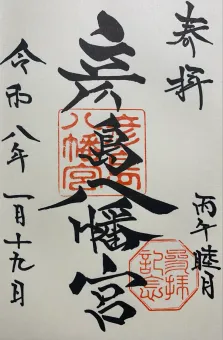 奉拝
丙午睦月
彦島八幡宮
彦島
八幡宮
参拝
記念
令和八年 一月十九日